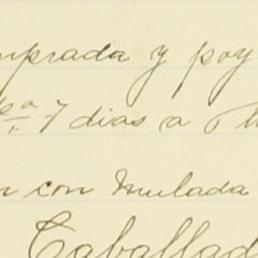 mprada y poy
po 7 dias a
n con Mulada
Caballad